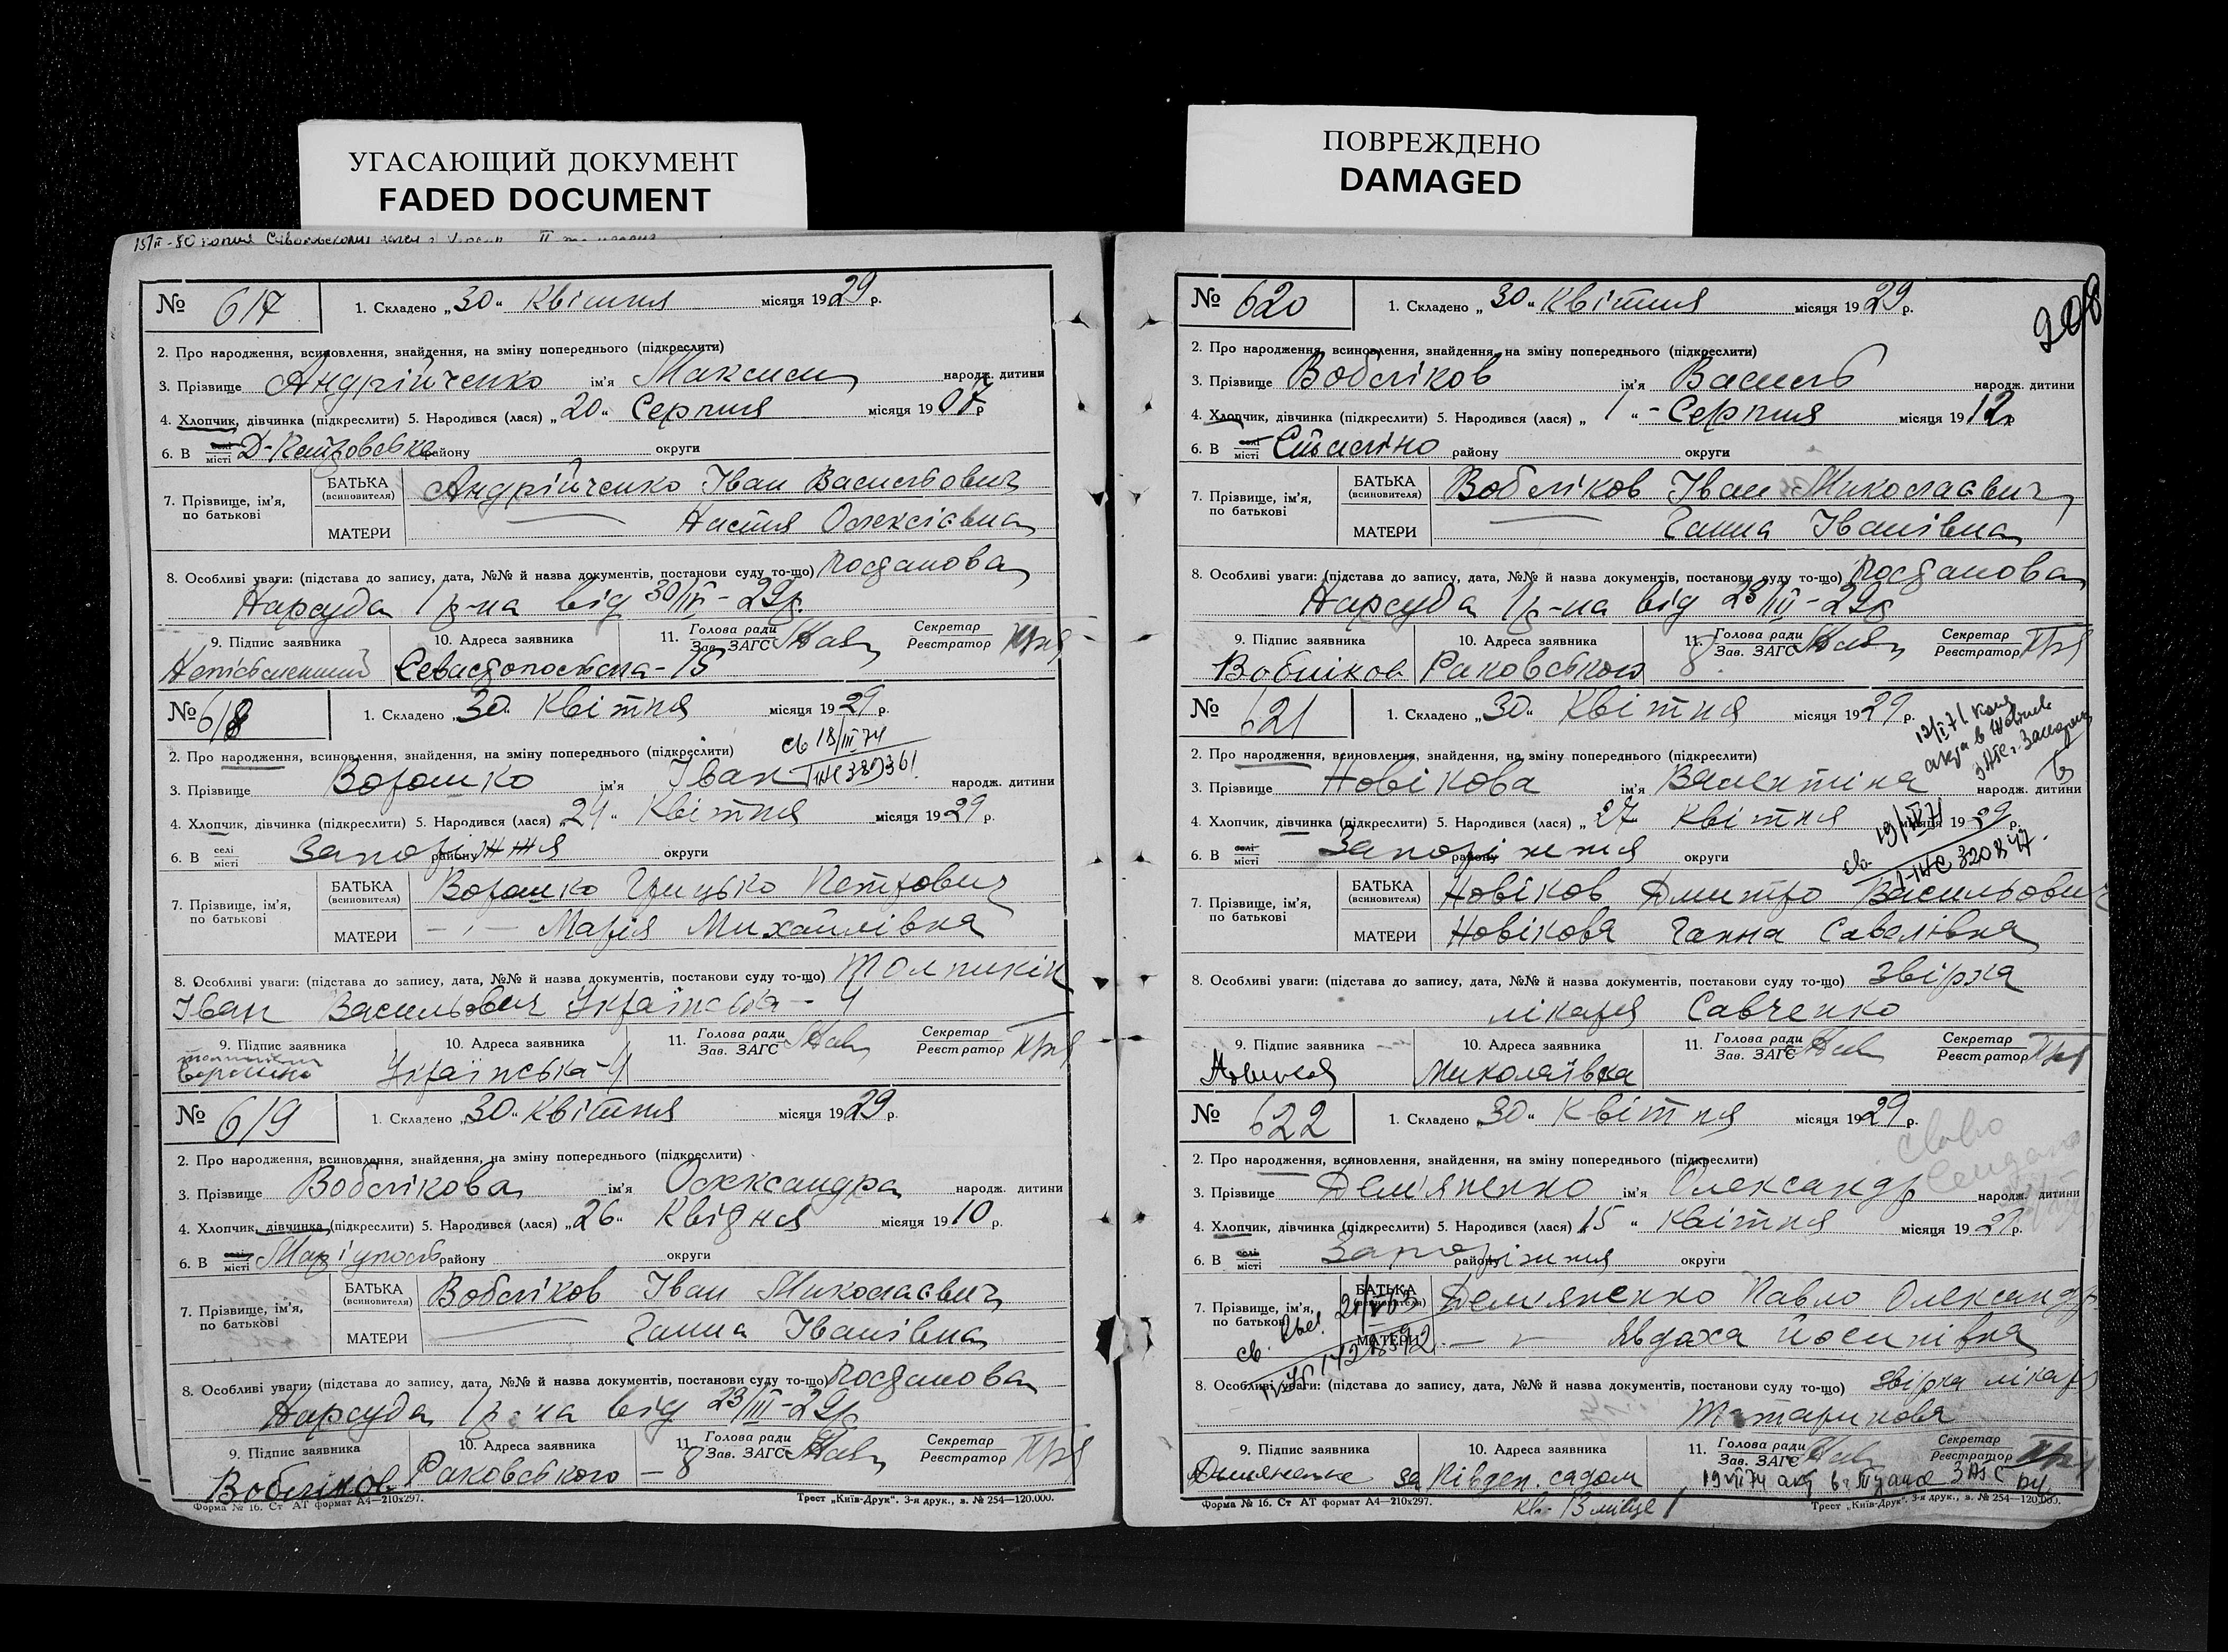 УГАСАЮЩИЙ ДОКУМЕНТ
FADED DOCUMENT
ПОВРЕЖДЕНО
DAMAGED
№ 617 1. Складено „30“ Квітня місяця 1929 р.
2. Про народження, всиновлення, знайдення, на зміну попереднього (підкреслити)
3. Прізвище Андрійченко ім'я Максим народж. дитини
4. Хлопчик, дівчинка (підкреслити) 5. Народився (лася) „20“ Серпня місяця 1907 р
6. В селі місті Д-Петровське району округи
7. Прізвище, ім'я, по батькові
БАТЬКА (всиновителя) Андрійченко Іван Васильович
МАТЕРИ Настя Олексієвна
8. Особливі уваги: (підстава до запису, дата, №№ й назва документів, постанови суду то-що) Постанова
Нарсуда 1 р-на від 30/III-29р.
9. Підпис заявника 10. Адреса заявника 11. Голова ради Зав. ЗАГС Секретар Реєстратор
Севастопольська-15
№ 618 1. Складено „30“ Квітня місяця 1929 р.
св 18/III 74
2. Про народження, всиновлення, знайдення, на зміну попереднього (підкреслити)
3. Прізвище Ворошко ім'я Іван народж. дитини
4. Хлопчик, дівчинка (підкреслити) 5. Народився (лася) „24“ Квітня місяця 1929 р.
6. В селі місті Запоріжжя району округи
7. Прізвище, ім'я, по батькові
БАТЬКА (всиновителя) Ворошко Грицько Петрович
МАТЕРИ —〃— Марія Михайлівна
8. Особливі уваги: (підстава до запису, дата, №№ й назва документів, постанови суду то-що) Толпикін
Іван Васильович Українська - 4
9. Підпис заявника 10. Адреса заявника 11. Голова ради Зав. ЗАГС Секретар Реєстратор
Українська-4
№ 619 1. Складено „30“ Квітня місяця 1929 р.
2. Про народження, всиновлення, знайдення, на зміну попереднього (підкреслити)
3. Прізвище Воблікова ім'я Олександра народж. дитини
4. Хлопчик, дівчинка (підкреслити) 5. Народився (лася) „26“ Квідня місяця 1910 р.
6. В селі місті Мар'уполь району округи
7. Прізвище, ім'я, по батькові
БАТЬКА (всиновителя) Вобліков Іван Миколаєвич
МАТЕРИ Ганна Іванівна
8. Особливі уваги: (підстава до запису, дата, №№ й назва документів, постанови суду то-що) Постанова
Нарсуда 1 р-на від 23/III-29р
9. Підпис заявника 10. Адреса заявника 11. Голова ради Зав. ЗАГС Секретар Реєстратор
Вобліков Раковського - 8
Форма № 16. Ст АТ формат А4—210х297. Трест „Київ-Друк“. 3-я друк., з. № 254—120.000.
208
№ 620 1. Складено „30“ Квітня місяця 1929 р.
2. Про народження, всиновлення, знайдення, на зміну попереднього (підкреслити)
3. Прізвище Вобліков ім'я Василь народж. дитини
4. Хлопчик, дівчинка (підкреслити) 5. Народився (лася) „1“ - Серпня місяця 1912 р
6. В селі місті Сталіно району округи
7. Прізвище, ім'я, по батькові
БАТЬКА (всиновителя) Вобліков Іван Миколаєвич
МАТЕРИ Ганна Іванівна
8. Особливі уваги: (підстава до запису, дата, №№ й назва документів, постанови суду то-що) Постанова
Нарсуда 1 р-на від 23/III-29р
9. Підпис заявника 10. Адреса заявника 11. Голова ради Зав. ЗАГС Секретар Реєстратор
Вобліков Раковського 8
№ 621 1. Складено „30“ Квітня місяця 1929 р.
2. Про народження, всиновлення, знайдення, на зміну попереднього (підкреслити)
3. Прізвище Новікова ім'я Валентіна народж. дитини
4. Хлопчик, дівчинка (підкреслити) 5. Народився (лася) „27“ Квітня місяця 1929 р.
6. В селі місті Запоріжжя району округи
7. Прізвище, ім'я, по батькові
БАТЬКА (всиновителя) Новіков Дмитро Васильович
МАТЕРИ Новікова Ганна Савелівна
8. Особливі уваги: (підстава до запису, дата, №№ й назва документів, постанови суду то-що) Звірка
лікаря Савченко
9. Підпис заявника 10. Адреса заявника 11. Голова ради Зав. ЗАГС Секретар Реєстратор
Миколаївка
№ 622 1. Складено „30“ Квітня місяця 1929 р.
2. Про народження, всиновлення, знайдення, на зміну попереднього (підкреслити)
3. Прізвище Дем'яненко ім'я Олександр народж. дитини
4. Хлопчик, дівчинка (підкреслити) 5. Народився (лася) „15“ Квітня місяця 1929 р.
6. В селі місті Запоріжжя району округи
7. Прізвище, ім'я, по батькові
БАТЬКА (всиновителя) Дем'яненко Павло Олександр
МАТЕРИ —〃— Явдоха Йосипівна
8. Особливі уваги: (підстава до запису, дата, №№ й назва документів, постанови суду то-що) Звірка лікаря
9. Підпис заявника 10. Адреса заявника 11. Голова ради Зав. ЗАГС Секретар Реєстратор
за Півден. садом
Форма № 16. Ст АТ формат А4—210х297. Трест „Київ-Друк“. 3-я друк., з. № 254—120.000.